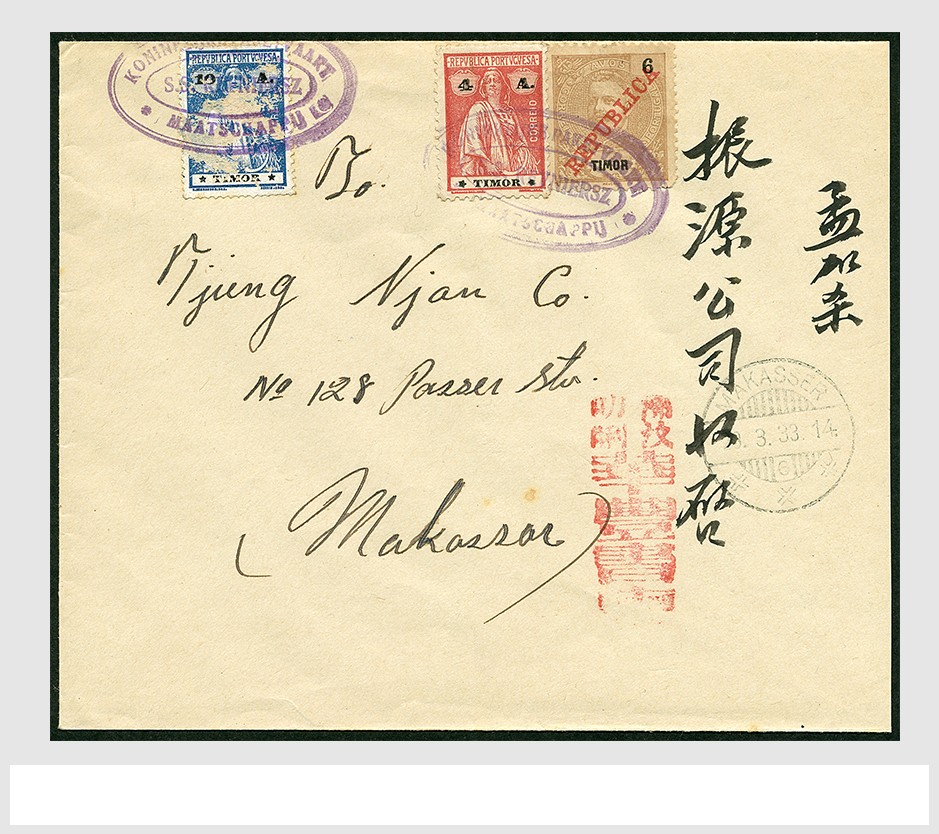 KONIN
MAATSCHAPPIJ
REPVBLICA PORTVGVESA
10 A.
TIMOR
REPVBLICA PORTVGVESA
4 A.
CORREIO
TIMOR
6
REPUBLICA
TIMOR
NIERSZ
MAATSCHAPPIJ
To.
Tjung Njan Co.
No 128 Passer str.
(Makassar)
孟加杀
振源公司收啓
MAKASSER
3.33.14